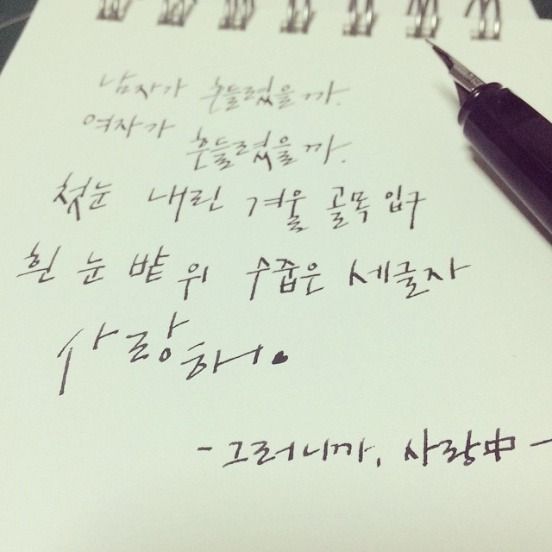 남자가 흔들렸을까.
여자가 흔들렸을까.
첫눈 내린 겨울 골목 입구
흰 눈 밭 위 수줍은 세글자
사랑해.
- 그러니까, 사랑中 -